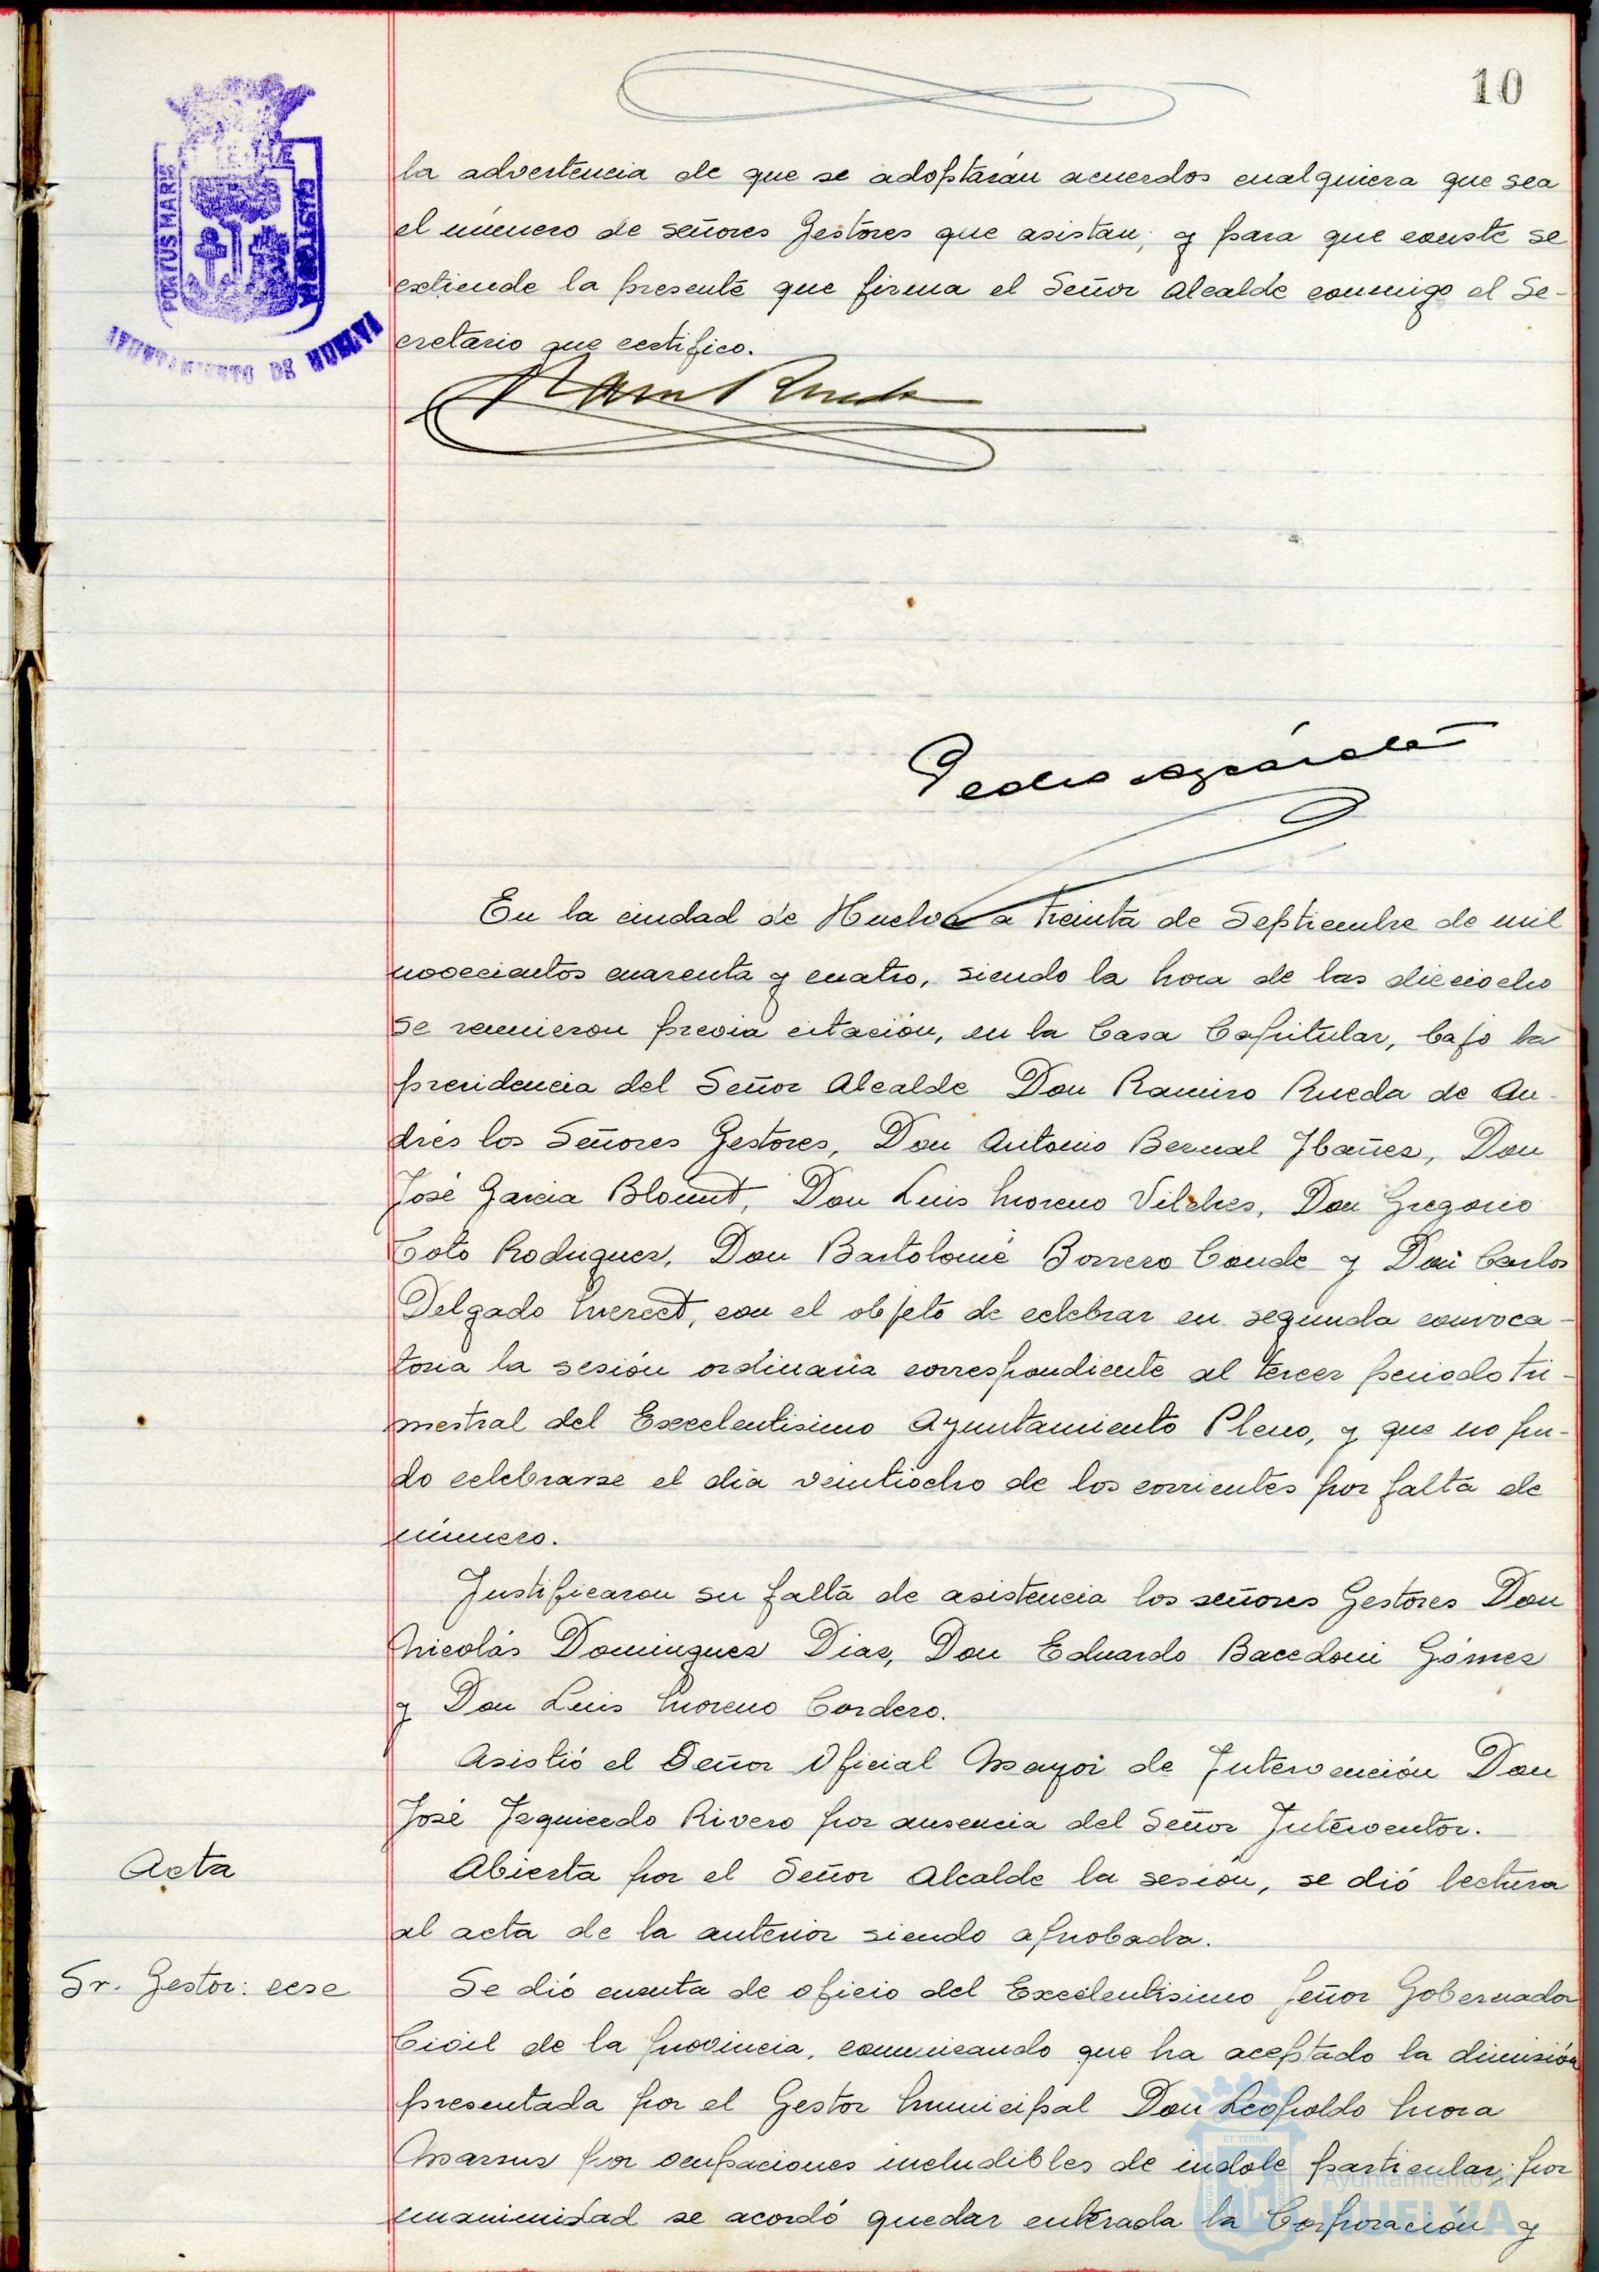 10
PORTUS MARIS
AYUNTAMIENTO DE HUELVA
la advertencia de que se adoptarán acuerdos cualquiera que sea
el número de señores Gestores que asistan; y para que conste se
extiende la presente que firma el Señor Alcalde conmigo el Se-
cretario que certifico.
En la ciudad de Huelva a treinta de Septiembre de mil
novecientos cuarenta y cuatro, siendo la hora de las dieciocho
se reunieron previa citación, en la Casa Capitular, bajo la
presidencia del Señor Alcalde Don Ramiro Rueda de An-
drés los Señores Gestores, Don Antonio Bernal Ibañez, Don
José Garcia Blount, Don Luis Moreno Vilches, Don Gregorio
Coto Rodriguez, Don Bartolomé Borrero Conde y Don Carlos
Delgado Merect, con el objeto de celebrar en segunda convoca-
toria la sesión ordinaria correspondiente al tercer periodo tri-
mestral del Excelentisimo Ayuntamiento Pleno, y que no pu-
do celebrarse el dia veintiocho de los corrientes por falta de
número.
Justificaron su falta de asistencia los señores Gestores Don
Nicolás Dominguez Diaz, Don Eduardo Bacedoni Gómez
y Don Luis Moreno Cordero.
Asistió el Señor Oficial Mayor de Intervención Don
José Izquierdo Rivero por ausencia del Señor Interventor.
Acta
Abierta por el Señor Alcalde la sesión, se dió lectura
al acta de la anterior siendo aprobada.
Sr. Gestor: cese
Se dió cuenta de oficio del Excelentisimo Señor Gobernador
Civil de la provincia, comunicando que ha aceptado la dimisión
presentada por el Gestor Municipal Don Leopoldo Mora
por ocupaciones ineludibles de indole particular; por
unanimidad se acordó quedar enterada la Corporación y
ET TERRA
Ayuntamiento
HUELVA